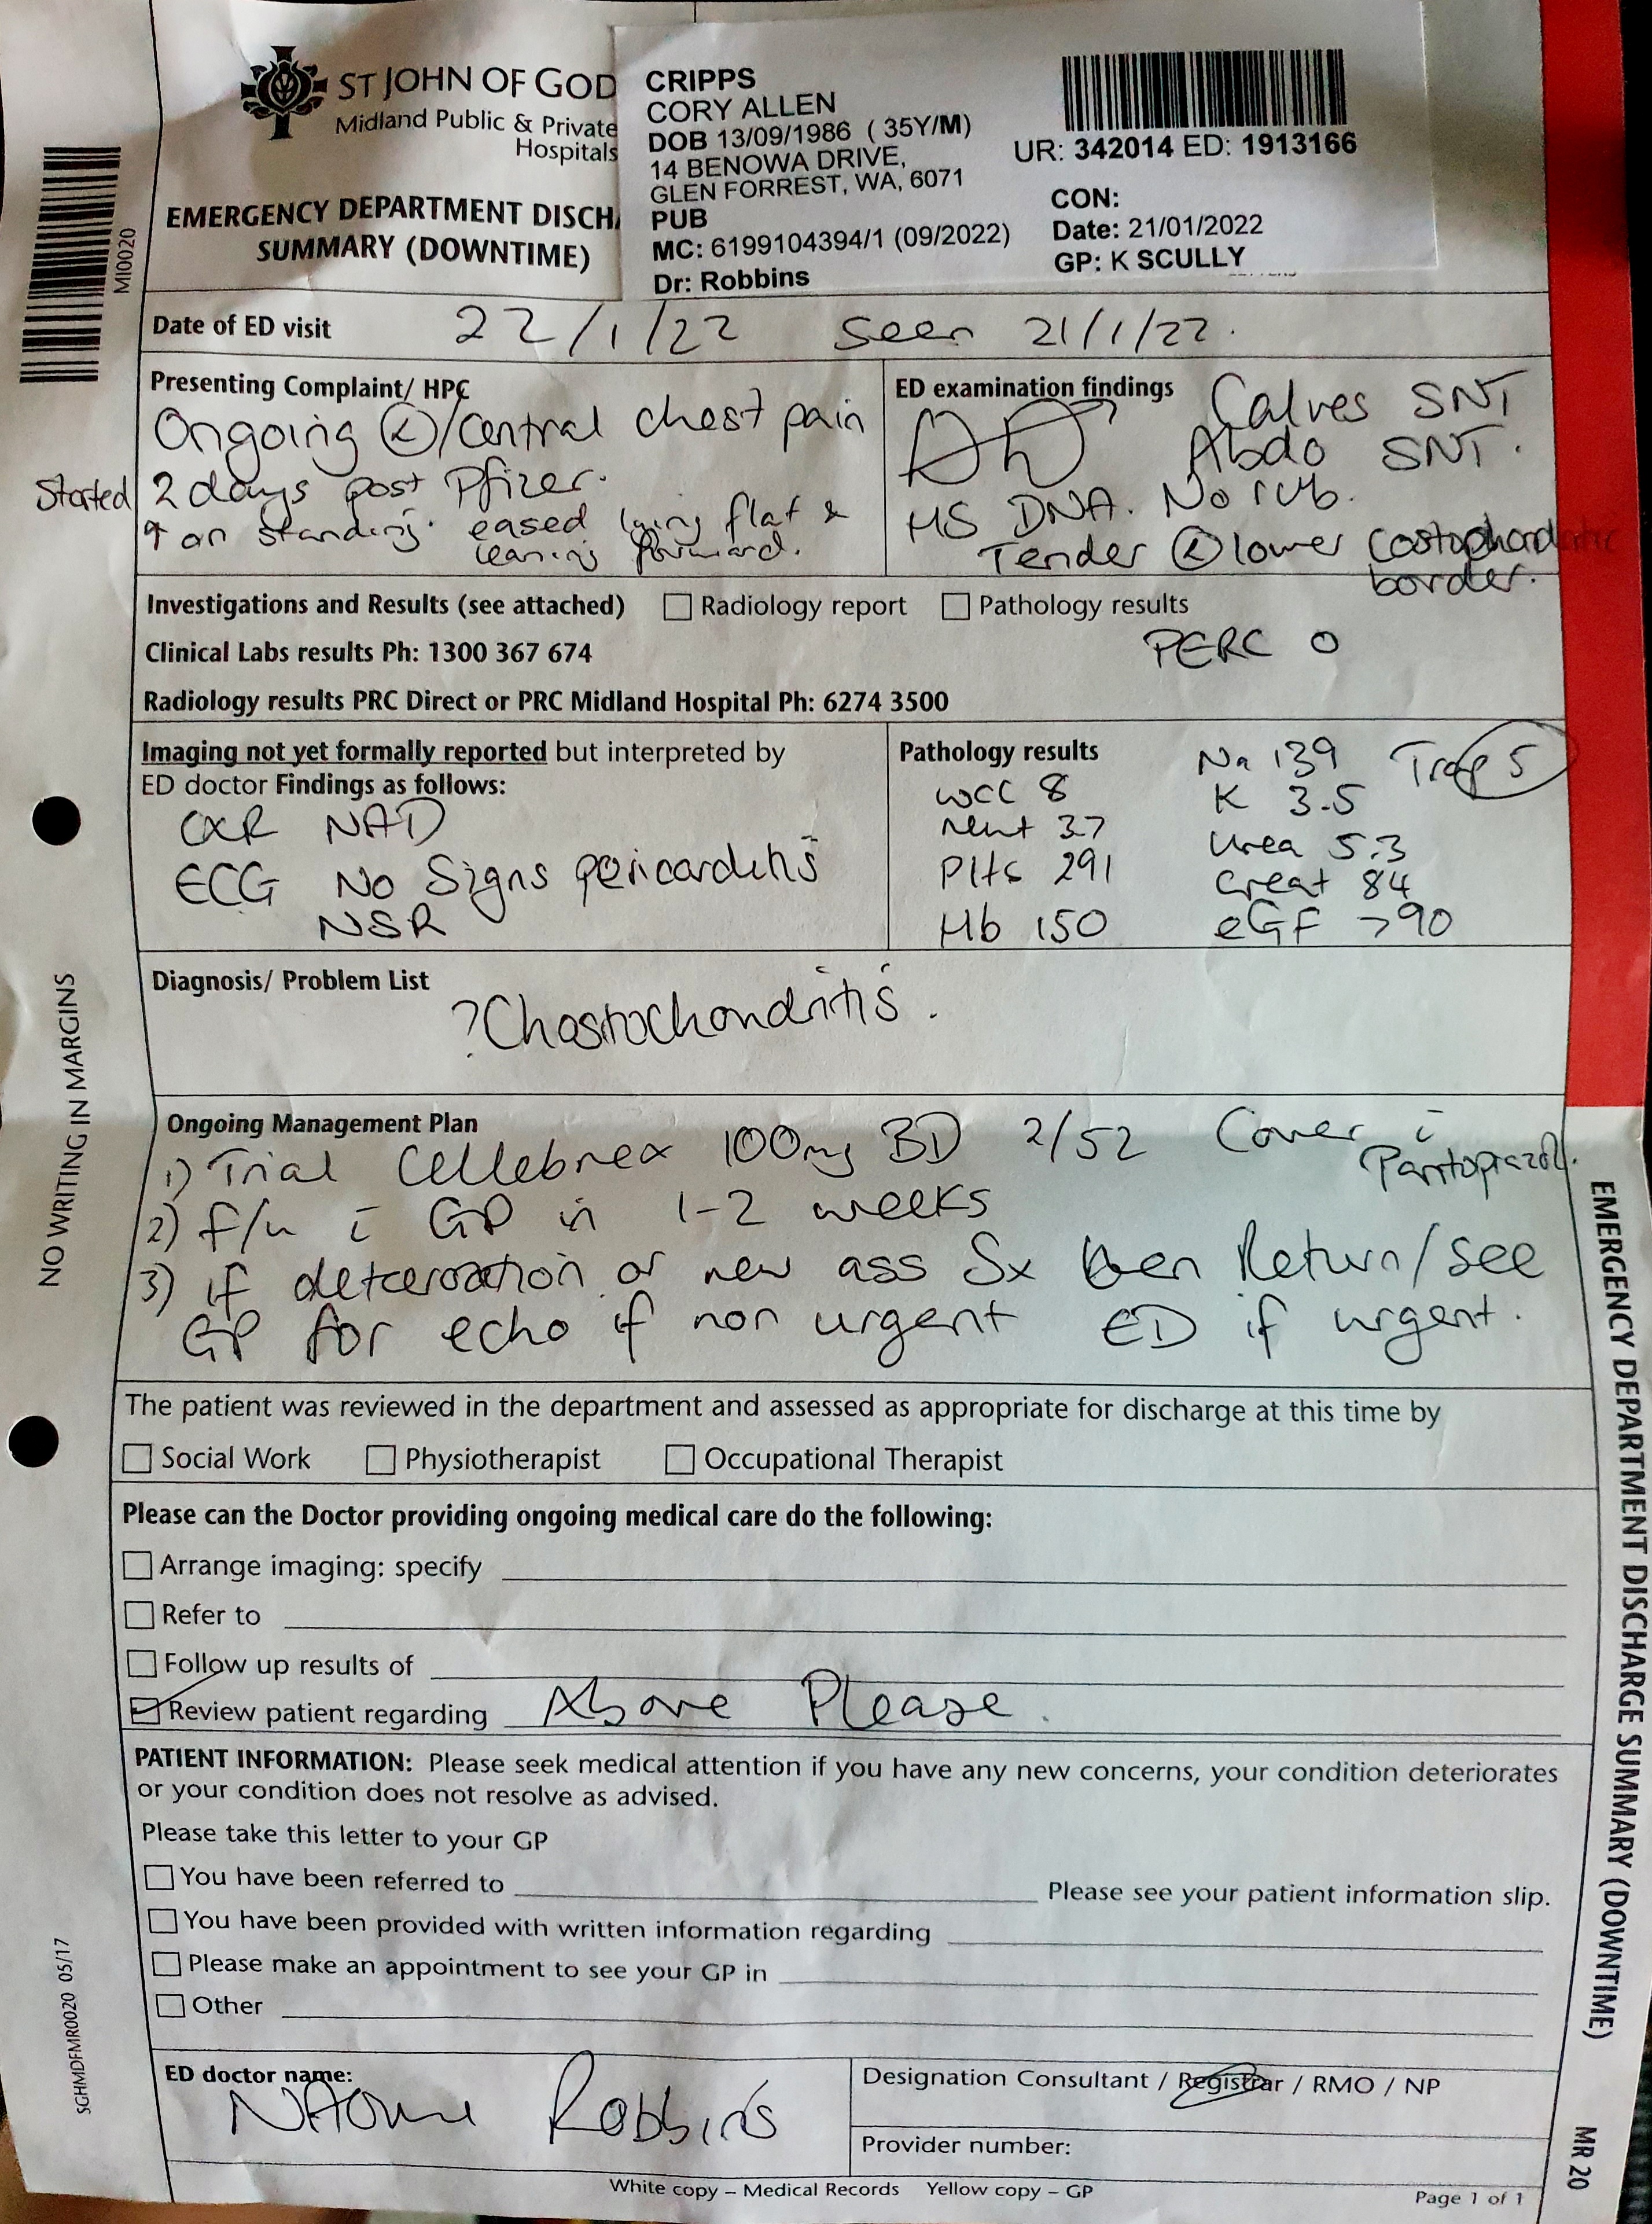 ST JOHN OF GOD
Midland Public & Private
Hospitals
EMERGENCY DEPARTMENT DISCHA
SUMMARY (DOWNTIME)
CRIPPS
CORY ALLEN
DOB 13/09/1986 ( 35Y/M)
14 BENOWA DRIVE,
GLEN FORREST, WA, 6071
PUB
MC: 6199104394/1 (09/2022)
Dr: Robbins
UR: 342014 ED: 1913166
CON:
Date: 21/01/2022
GP: K SCULLY
MI0020
Date of ED visit 22/1/22 Seen 21/1/22.
Presenting Complaint/ HPC
Ongoing Ⓛ/Central chest pain
Started 2 days post Pfizer.
↑ on standing. eased lying flat &
leaning forward.
ED examination findings
Calves SNT
Abdo SNT.
HS DNA. No rub.
Tender Ⓛ lower
border.
Investigations and Results (see attached) Radiology report Pathology results
PERC 0
Clinical Labs results Ph: 1300 367 674
Radiology results PRC Direct or PRC Midland Hospital Ph: 6274 3500
Imaging not yet formally reported but interpreted by
ED doctor Findings as follows:
CXR NAD
ECG No Signs pericarditis
NSR
Pathology results
WCC 8
Neut 3.7
Plts 291
Hb 150
Na 139
K 3.5
Urea 5.3
Creat 84
eGF >90
Trop 5
Diagnosis/ Problem List
?Chostochondritis.
Ongoing Management Plan
1) Trial Cellebrex 100mg BD 2/52 Cover c̄
Pantoprazol.
2) f/u c̄ GP in 1-2 weeks
3) if deterceroation or new ass Sx then Return/see
GP for echo if non urgent ED if urgent.
The patient was reviewed in the department and assessed as appropriate for discharge at this time by
Social Work Physiotherapist Occupational Therapist
Please can the Doctor providing ongoing medical care do the following:
Arrange imaging: specify
Refer to
Follow up results of
Review patient regarding Above Please.
PATIENT INFORMATION: Please seek medical attention if you have any new concerns, your condition deteriorates
or your condition does not resolve as advised.
Please take this letter to your GP
You have been referred to Please see your patient information slip.
You have been provided with written information regarding
Please make an appointment to see your GP in
Other
ED doctor name:
Naomi Robbins
Designation Consultant / Registrar / RMO / NP
Provider number:
White copy – Medical Records Yellow copy – GP
Page 1 of 1
NO WRITING IN MARGINS
SGHMDFMR0020 05/17
EMERGENCY DEPARTMENT DISCHARGE SUMMARY (DOWNTIME)
MR 20